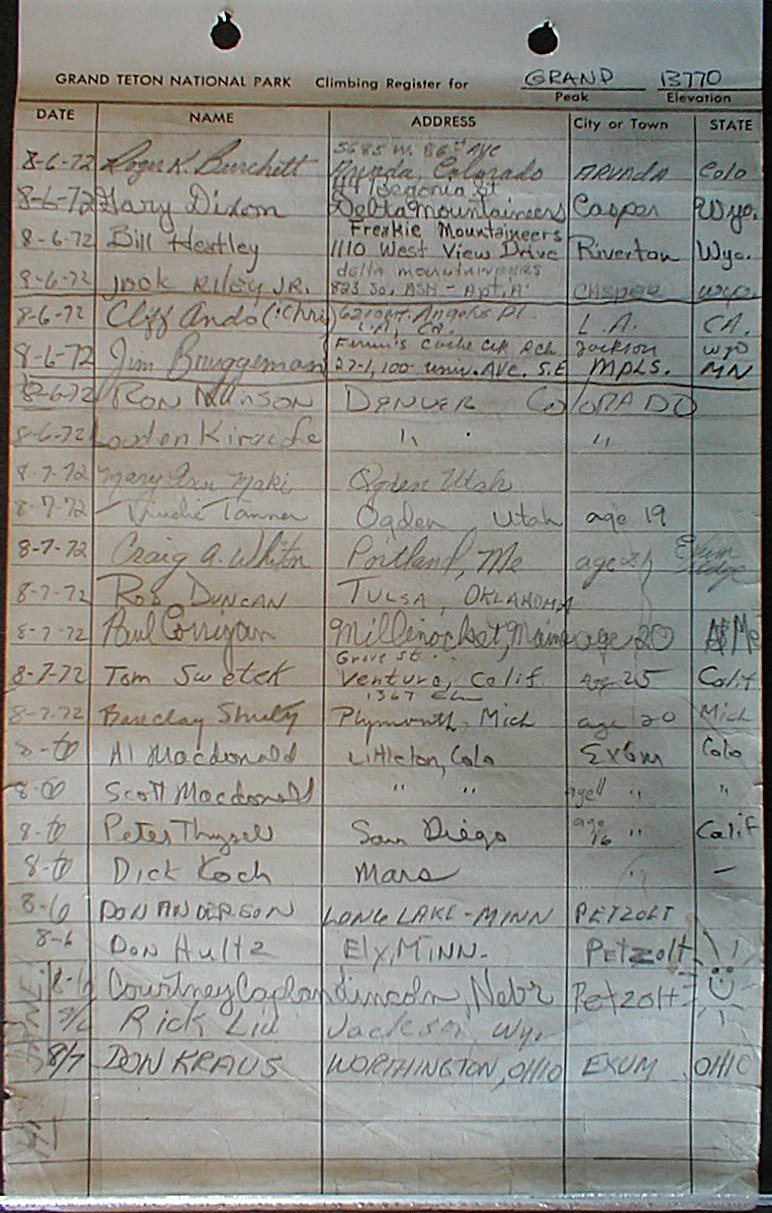 GRAND TETON NATIONAL PARK Climbing Register for GRAND 13770
Peak Elevation
DATE NAME ADDRESS City or Town STATE
5685 W. 86th AVE
8-6-72 Roger K. Burchett Arvada, Colorado ARVADA Colo
Begonia St
8-6-72 Gary Dixon Delta Mountaineers Casper Wyo.
Freakie Mountaineers
8-6-72 Bill Hestley 1110 West View Drive Riverton Wyo.
delta mountaineers
8-6-72 JACK RILEY JR. 823 So. ASH - Apt. A CASPER wyo.
8-6-72 Cliff Ando Angelus Pl. L.A. CA.
L.A., CA.
Jackson wyo
8-6-72 Jim Bruggeman 27-1,100- univ. AVE. S.E MPLS. MN
8-6-72 RON DENVER COLORADO
8-6-72 " "
8-7-72 Mary Maki Ogden Utah
8-7-72 Trudie Tanner Ogden, Utah age 19
8-7-72 Craig A. Portland, Me age 21 Exum Ridge
8-7-72 ROB DUNCAN TULSA, OKLAHOMA
8-7-72 Paul Corrigan Millinocket, Maine age 20 Me
Grove St.
8-7-72 Tom Swetek Ventura, Calif age 25 Calif
1367 Elm
8-7-72 Barclay Shultz Plymouth, Mich age 20 Mich
8- Al Macdonald Littleton, Colo Exum Colo
8- Scott Macdonald " " age 11 " "
8- Peter San Diego age 16 " Calif
8- Dick Koch Mars " —
8-6 DON ANDERSON LONG LAKE - MINN PETZOLT
8-6 Don Hultz Ely, MINN. Petzolt
8-6 Courtney Caplan Lincoln, Nebr Petzolt
8/6 Rick Liu Jackson, Wyo
8/7 DON KRAUS WORTHINGTON, OHIO EXUM OHIO